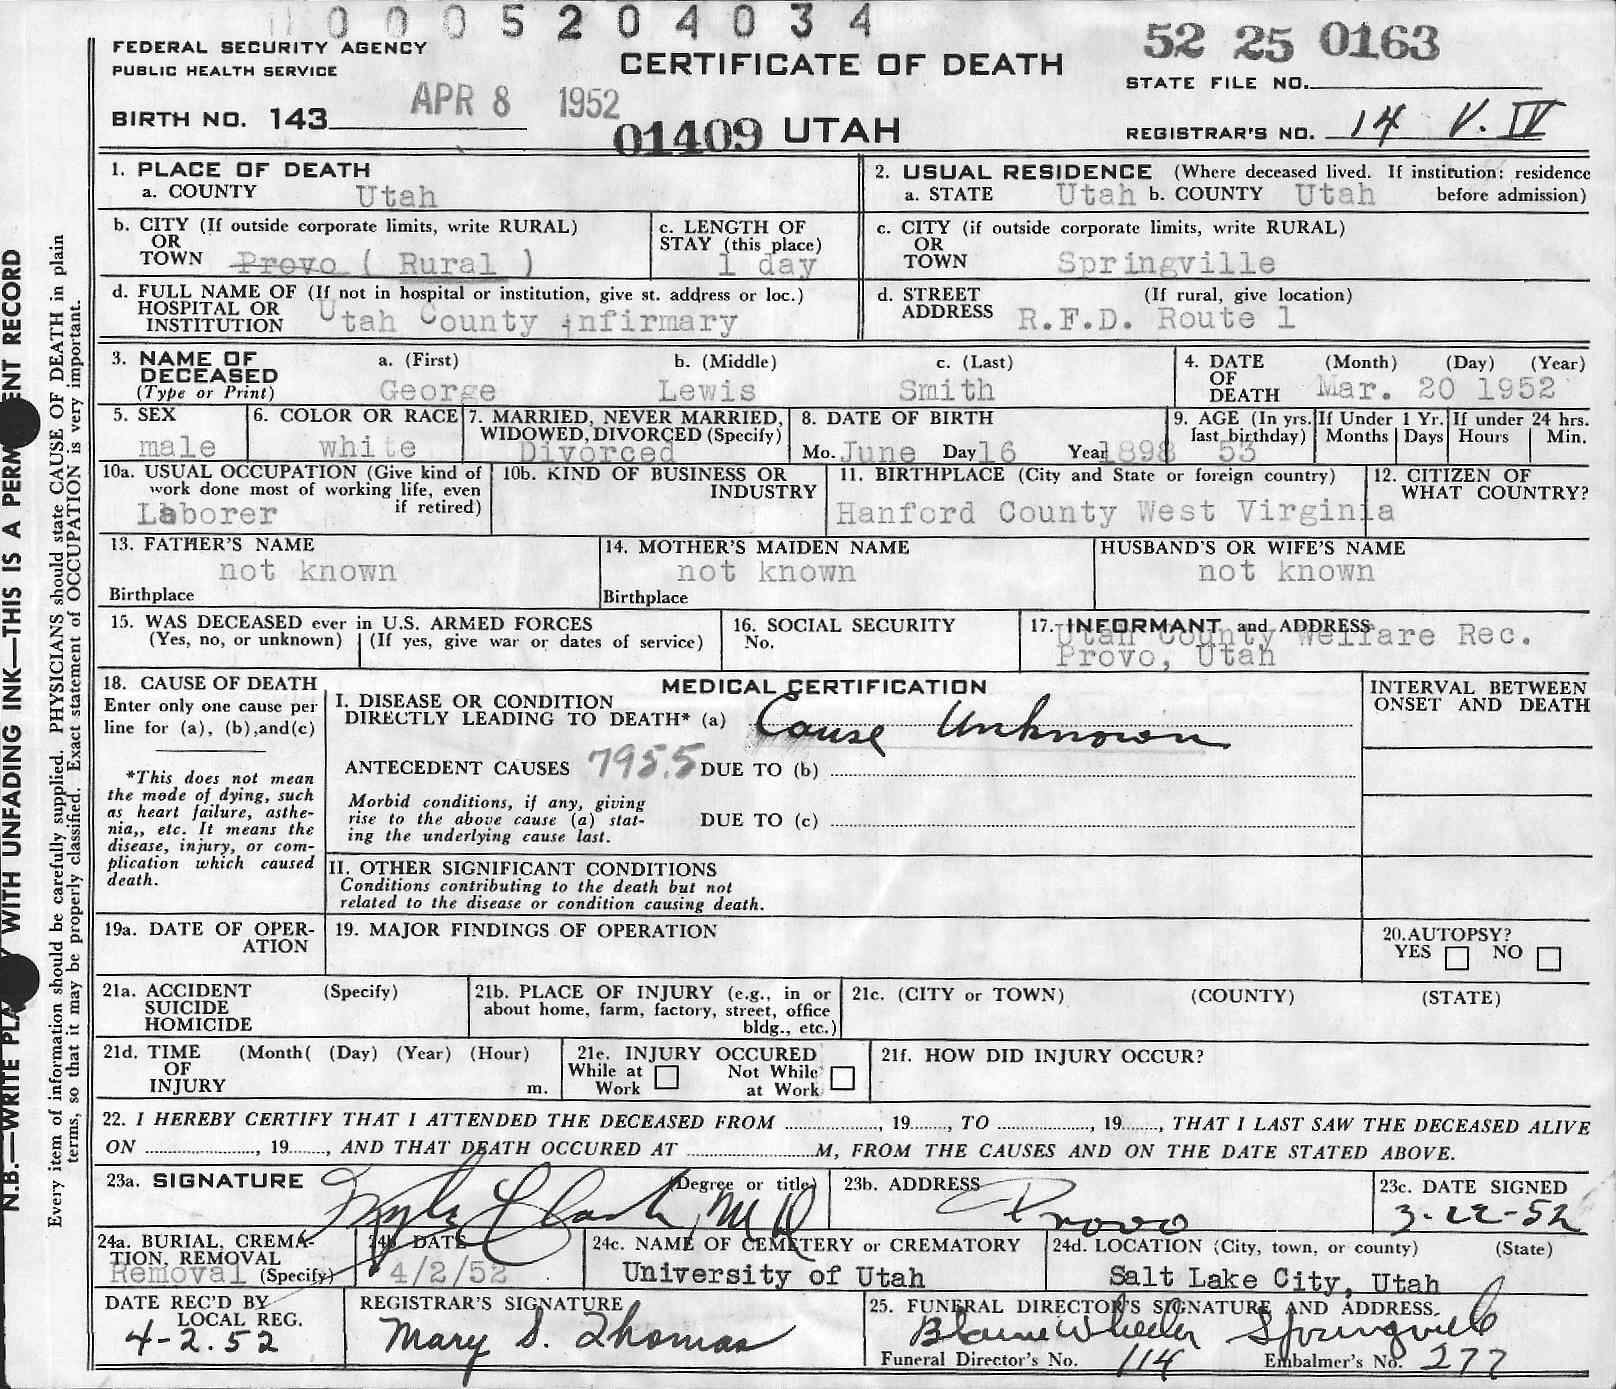 0005204034
52 25 0163
FEDERAL SECURITY AGENCY
PUBLIC HEALTH SERVICE
CERTIFICATE OF DEATH
STATE FILE NO.
APR 8 1952
BIRTH NO. 143
01409 UTAH
REGISTRAR'S NO. 14 V. IV
1. PLACE OF DEATH
a. COUNTY Utah
2. USUAL RESIDENCE (Where deceased lived. If institution: residence
a. STATE Utah b. COUNTY Utah before admission)
b. CITY (If outside corporate limits, write RURAL)
OR
TOWN Provo ( Rural )
c. LENGTH OF
STAY (this place)
1 day
c. CITY (if outside corporate limits, write RURAL)
OR
TOWN Springville
d. FULL NAME OF (If not in hospital or institution, give st. address or loc.)
HOSPITAL OR
INSTITUTION Utah County infirmary
d. STREET (If rural, give location)
ADDRESS R.F.D. Route 1
3. NAME OF a. (First) b. (Middle) c. (Last)
DECEASED
(Type or Print) George Lewis Smith
4. DATE (Month) (Day) (Year)
OF
DEATH Mar. 20 1952
5. SEX
male
6. COLOR OR RACE
white
7. MARRIED, NEVER MARRIED,
WIDOWED, DIVORCED (Specify)
Divorced
8. DATE OF BIRTH
Mo. June Day 16 Year 1898
9. AGE (In yrs.
last birthday)
53
If Under 1 Yr.
Months Days
If under 24 hrs.
Hours Min.
10a. USUAL OCCUPATION (Give kind of
work done most of working life, even
if retired)
Laborer
10b. KIND OF BUSINESS OR
INDUSTRY
11. BIRTHPLACE (City and State or foreign country)
Hanford County West Virginia
12. CITIZEN OF
WHAT COUNTRY?
13. FATHER'S NAME
not known
Birthplace
14. MOTHER'S MAIDEN NAME
not known
Birthplace
HUSBAND'S OR WIFE'S NAME
not known
15. WAS DECEASED ever in U.S. ARMED FORCES
(Yes, no, or unknown) (If yes, give war or dates of service)
16. SOCIAL SECURITY
No.
17. INFORMANT and ADDRESS
Utah County Welfare Rec.
Provo, Utah
18. CAUSE OF DEATH
Enter only one cause per
line for (a), (b), and (c)
*This does not mean
the mode of dying, such
as heart failure, asthe-
nia,, etc. It means the
disease, injury, or com-
plication which caused
death.
MEDICAL CERTIFICATION
I. DISEASE OR CONDITION
DIRECTLY LEADING TO DEATH* (a) Cause Unknown
ANTECEDENT CAUSES 795.5 DUE TO (b)
Morbid conditions, if any, giving
rise to the above cause (a) stat-
ing the underlying cause last.
DUE TO (c)
II. OTHER SIGNIFICANT CONDITIONS
Conditions contributing to the death but not
related to the disease or condition causing death.
INTERVAL BETWEEN
ONSET AND DEATH
19a. DATE OF OPER-
ATION
19. MAJOR FINDINGS OF OPERATION
20. AUTOPSY?
YES NO
21a. ACCIDENT (Specify)
SUICIDE
HOMICIDE
21b. PLACE OF INJURY (e.g., in or
about home, farm, factory, street, office
bldg., etc.)
21c. (CITY or TOWN) (COUNTY) (STATE)
21d. TIME (Month( (Day) (Year) (Hour)
OF
INJURY m.
21e. INJURY OCCURED
While at Not While
Work at Work
21f. HOW DID INJURY OCCUR?
22. I HEREBY CERTIFY THAT I ATTENDED THE DECEASED FROM ............, 19......, TO ............, 19......, THAT I LAST SAW THE DECEASED ALIVE
ON ............, 19......, AND THAT DEATH OCCURED AT ............M, FROM THE CAUSES AND ON THE DATE STATED ABOVE.
23a. SIGNATURE (Degree or title)
Clark, MD
23b. ADDRESS
Provo
23c. DATE SIGNED
3-22-52
24a. BURIAL, CREMA-
TION, REMOVAL
Removal (Specify)
24b DATE
4/2/52
24c. NAME OF CEMETERY or CREMATORY
University of Utah
24d. LOCATION (City, town, or county) (State)
Salt Lake City, Utah
DATE REC'D BY
LOCAL REG.
4-2.52
REGISTRAR'S SIGNATURE
Mary S. Thomas
25. FUNERAL DIRECTOR'S SIGNATURE AND ADDRESS.
Blaine Wheeler Springville
Funeral Director's No. 114 Embalmer's No. 277
N.B.—WRITE WITH UNFADING INK—THIS IS A RECORD
Every item of information should be carefully supplied. PHYSICIANS should state CAUSE OF DEATH in plain
terms, so that it may be properly classified. Exact statement of OCCUPATION is very important.